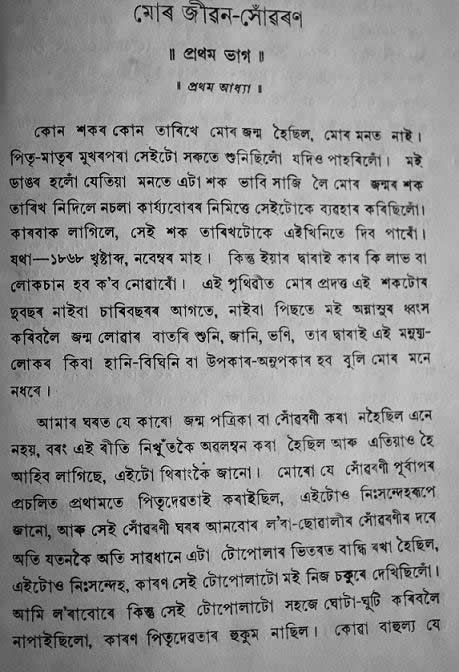 মোৰ জীৱন-সোঁৱৰণ
॥ প্ৰথম ভাগ ॥
॥ প্ৰথম আধ্যা ॥
কোন শকৰ কোন তাৰিখে মোৰ জন্ম হৈছিল, মোৰ মনত নাই।
পিতৃ-মাতৃৰ মুখৰপৰা সেইটো সৰুতে শুনিছিলোঁ যদিও পাহৰিলোঁ। মই
ডাঙৰ হলোঁ যেতিয়া মনতে এটা শক ভাবি সাজি লৈ মোৰ জন্মৰ শক
তাৰিখ নিদিলে নচলা কাৰ্য্যবোৰৰ নিমিত্তে সেইটোকে ব্যৱহাৰ কৰিছিলোঁ।
কাৰবাক লাগিলে, সেই শক তাৰিখটোকে এইখিনিতে দিব পাৰোঁ।
যথা—১৮৬৮ খৃষ্টাব্দ, নবেম্বৰ মাহ। কিন্তু ইয়াৰ দ্বাৰাই কাৰ কি লাভ বা
লোকচান হব ক'ব নোৱাৰোঁ। এই পৃথিৱীত মোৰ প্ৰদত্ত এই শকটোৰ
দুবছৰ নাইবা চাৰিবছৰৰ আগতে, নাইবা পিছতে মই অন্নাসুৰ ধ্বংস
কৰিবলৈ জন্ম লোৱাৰ বাতৰি শুনি, জানি, ভণি, তাৰ দ্বাৰাই এই মনুষ্য-
লোকৰ কিবা হানি-বিঘিনি বা উপকাৰ-অনুপকাৰ হব বুলি মোৰ মনে
নধৰে।
আমাৰ ঘৰত যে কাৰো জন্ম পত্ৰিকা বা সোঁৱৰণী কৰা নহৈছিল এনে
নহয়, বৰং এই ৰীতি নিখুঁতকৈ অৱলম্বন কৰা হৈছিল আৰু এতিয়াও হৈ
আহিব লাগিছে, এইটো থিৰাংকৈ জানো। মোৰো যে সোঁৱৰণী পূৰ্বাপৰ
প্ৰচলিত প্ৰথামতে পিতৃদেৱতাই কৰাইছিল, এইটোও নিঃসন্দেহৰূপে
জানো, আৰু সেই সোঁৱৰণী ঘৰৰ আনবোৰ ল'ৰা-ছোৱালীৰ সোঁৱৰণীৰ দৰে
অতি যতনকৈ অতি সাৱধানে এটা টোপোলাৰ ভিতৰত বান্ধি ৰখা হৈছিল,
এইটোও নিঃসন্দেহ, কাৰণ সেই টোপোলাটো মই নিজ চকুৰে দেখিছিলোঁ।
আমি ল'ৰাবোৰে কিন্তু সেই টোপোলাটো সহজে ঘোটা-ঘূটি কৰিবলৈ
নাপাইছিলো, কাৰণ পিতৃদেৱতাৰ হুকুম নাছিল। কোৱা বাহুল্য যে